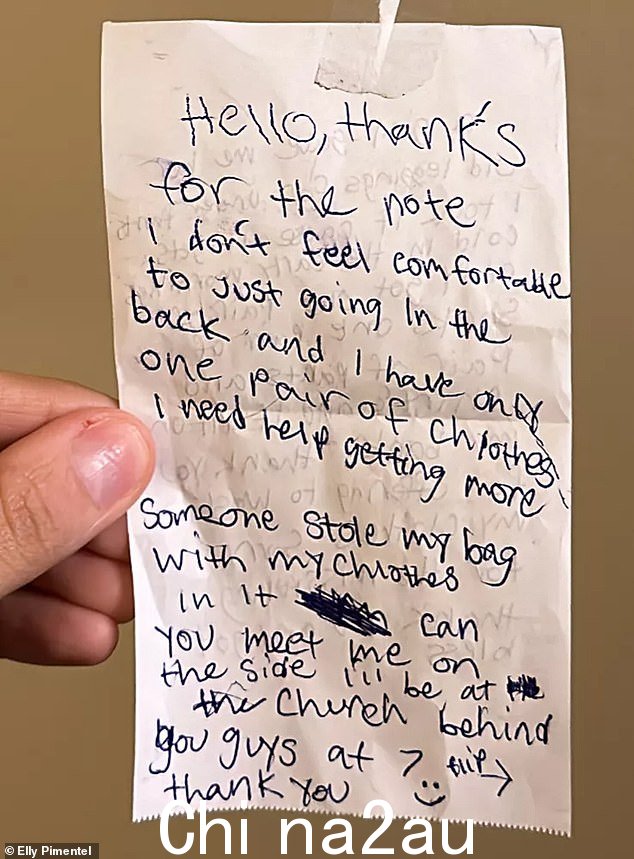 Hello, thank's
for the note
I don't feel comfortable
to just going In the
back and I have only
one pair of chlothes
I need help getting more
Someone stole my bag
with my chlothes
in it can
you meet me on
the side I'll be at
the church behind
you guys at 7 flip →
thank you
Chi na2au
© Elly Pimentel